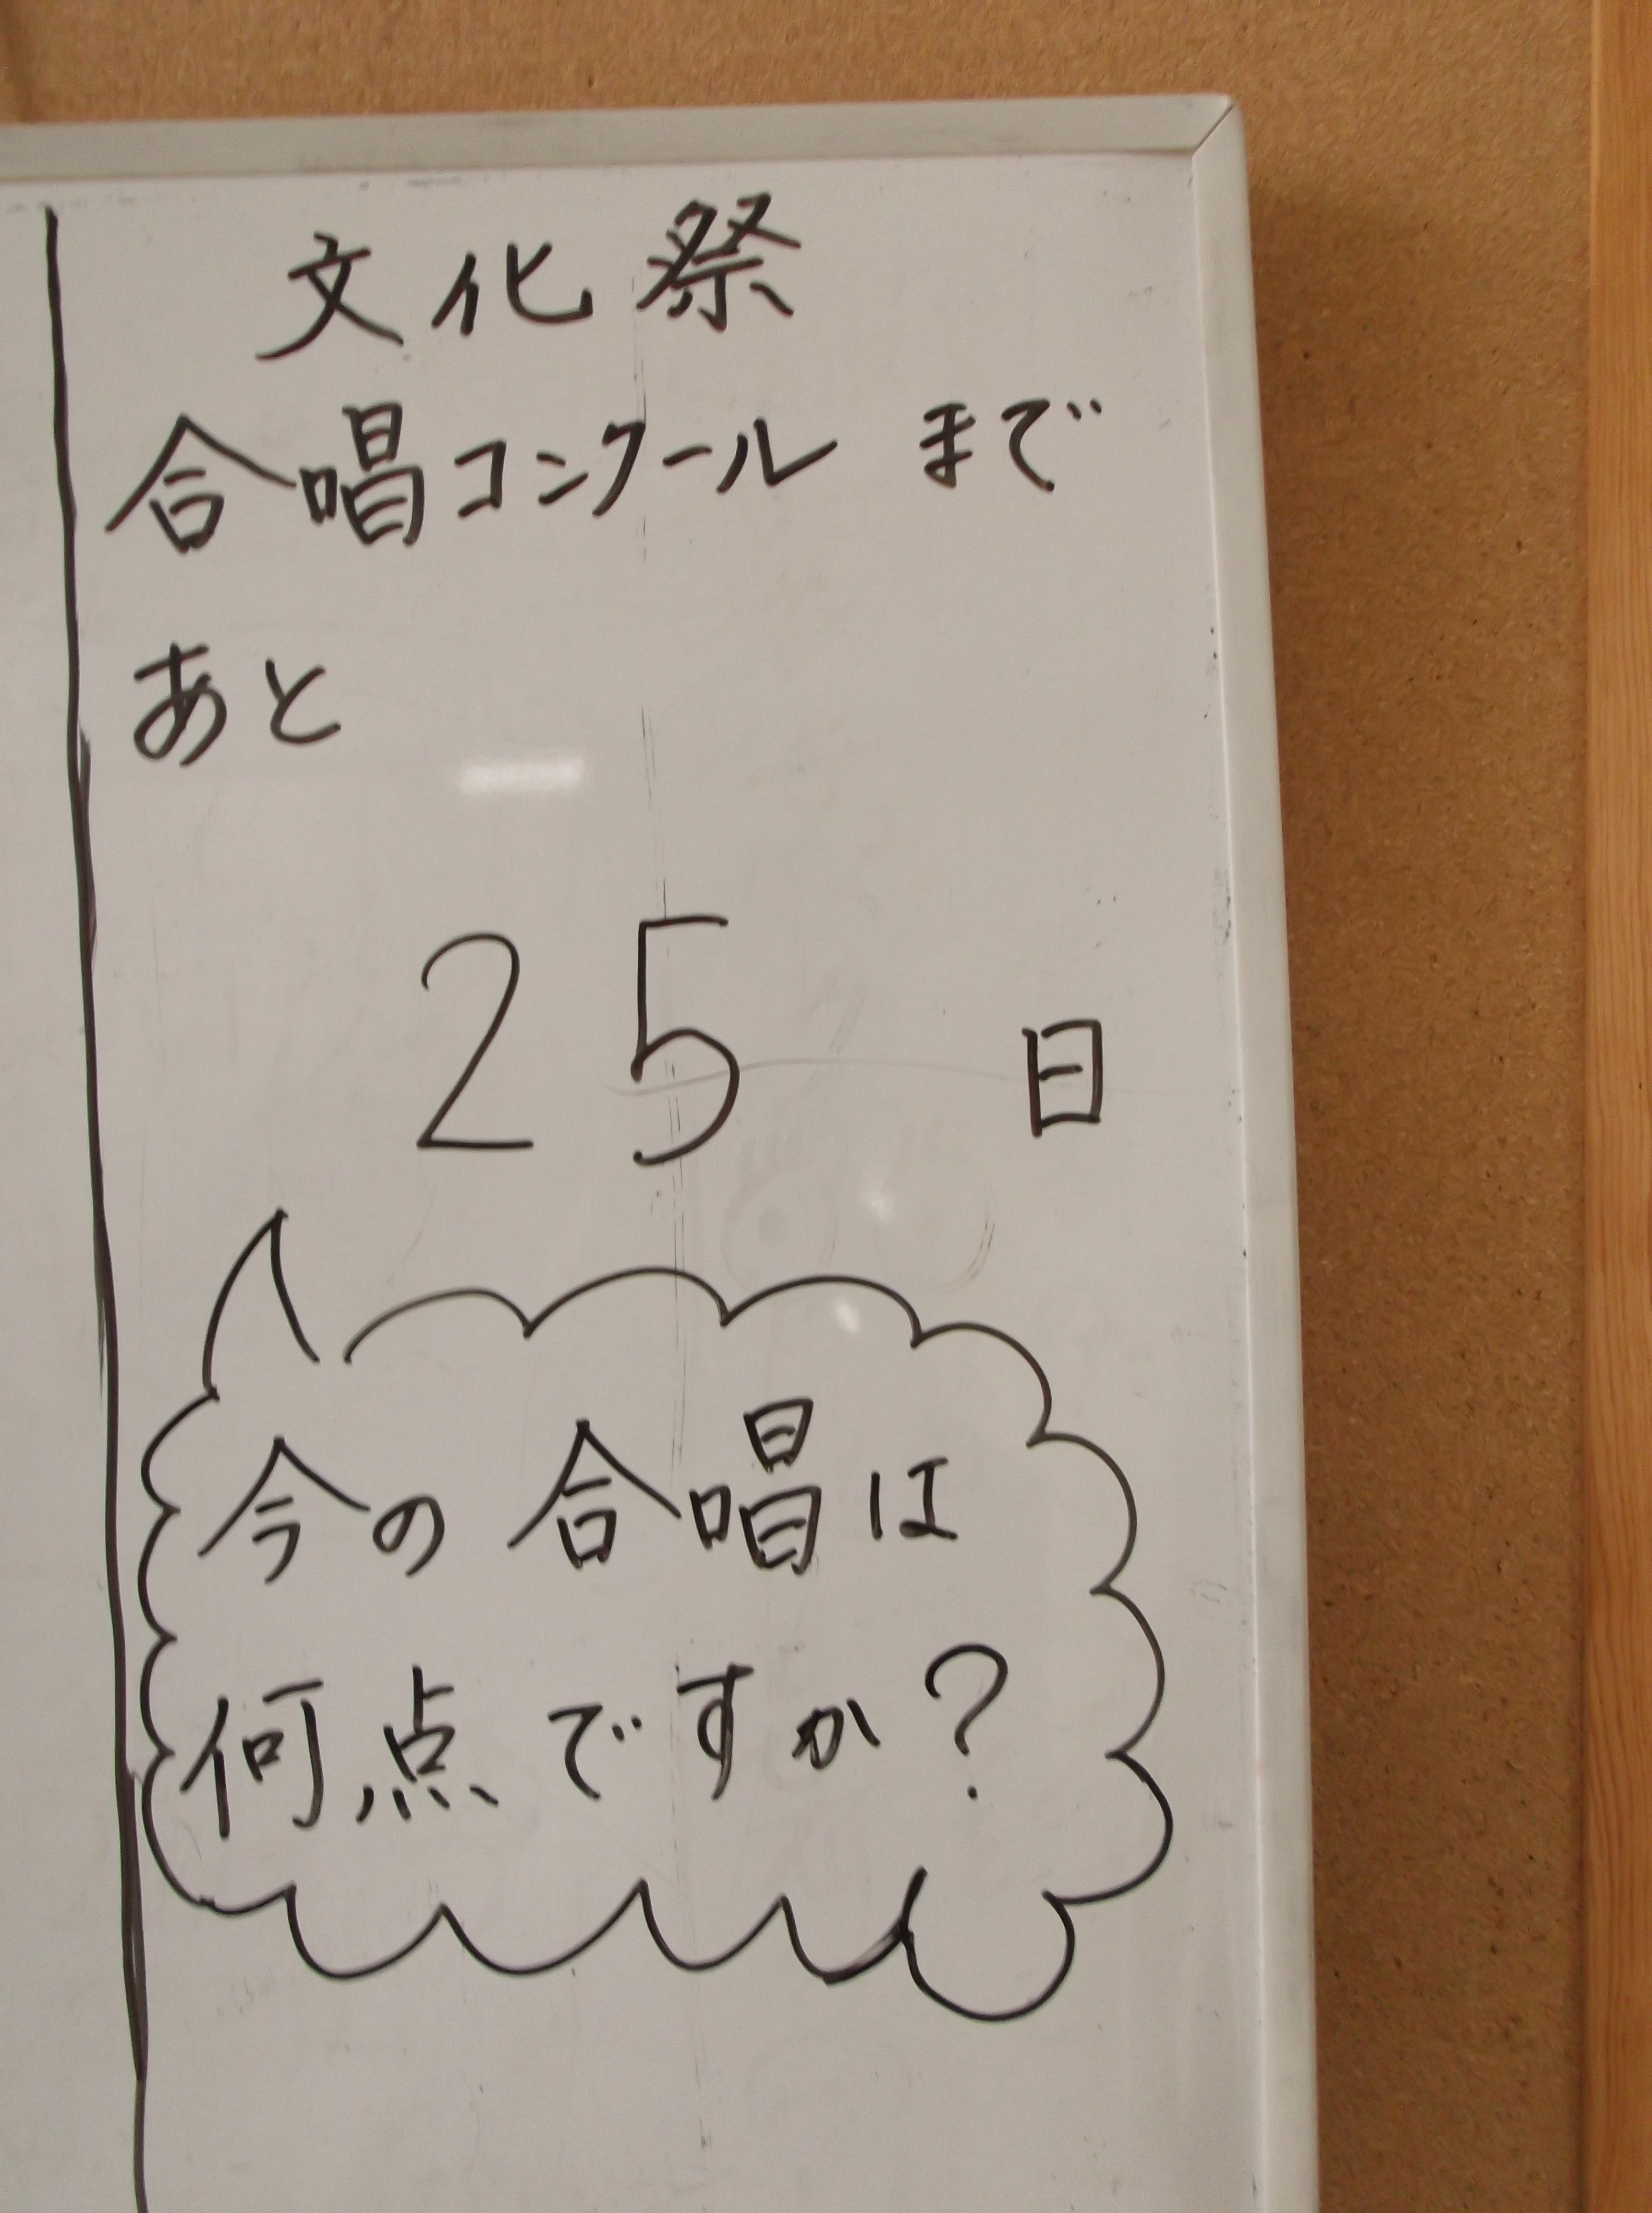 文化祭
合唱コンクールまで
あと
25 日
今の合唱は
何点ですか？